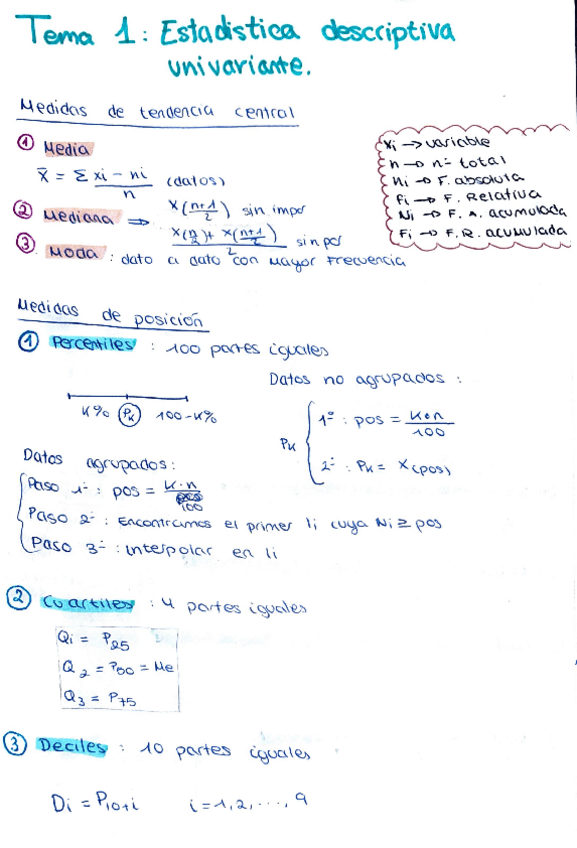 Tema 1: Estadística descriptiva
univariante.
Medidas de tendencia central
① Media
x̄ = Σ xi - ni / n (datos)
② Mediana ⇒ x(n+1/2) si n impar
x(n/2) + x(n+1/2) / 2 si n par
③ Moda : dato a dato con mayor frecuencia
xi → variable
n → nº total
ni → F. absoluta
fi → F. Relativa
Ni → F. A. acumulada
Fi → F. R. acumulada
Medidas de posición
① Percentiles : 100 partes iguales
K% Pk 100-K%
Datos no agrupados :
Pk
1º : pos = K·n / 100
2º : Pk = x(pos)
Datos agrupados :
Paso 1º : pos = K·n / 100
Paso 2º : Encontramos el primer li cuya Ni ≥ pos
Paso 3º : Interpolar en li
② Cuartiles : 4 partes iguales
Qi = P25
Q2 = P50 = Me
Q3 = P75
③ Deciles : 10 partes iguales
Di = P10+i i = 1, 2, ..., 9